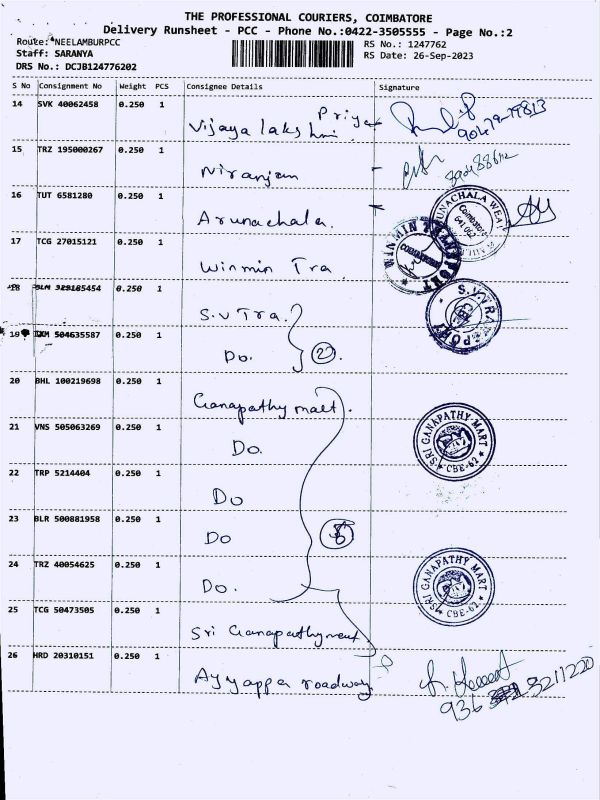 THE PROFESSIONAL COURIERS, COIMBATORE
Delivery Runsheet - PCC - Phone No.:0422-3505555 - Page No.:2
Route: NEELAMBURPCC
RS No.: 1247762
Staff: SARANYA
RS Date: 26-Sep-2023
DRS No.: DCJB124776202
S No Consignment No Weight PCS Consignee Details Signature
14 SVK 40062458 0.250 1
Priya
Vijaya lakshmi.
15 TRZ 195000267 0.250 1
Niranjan
16 TUT 6581280 0.250 1
Arunachala.
17 TCG 27015121 0.250 1
WINMIN TRANSPORT
Winmin Tra
18 0.250 1
S.V Tra.
19 504635587 0.250 1
Do. 2
20 BHL 100219698 0.250 1
Ganapathy matt.
21 VNS 505063269 0.250 1
SRI GANAPATHY MART
CBE-62
Do.
22 TRP 5214404 0.250 1
Do
23 BLR 500881958 0.250 1
Do
24 TRZ 40054625 0.250 1
SRI GANAPATHY MART
CBE-62
Do.
25 TCG 50473505 0.250 1
Sri Ganapathy
26 HRD 20310151 0.250 1
Ayyappa roadway
936 3211220